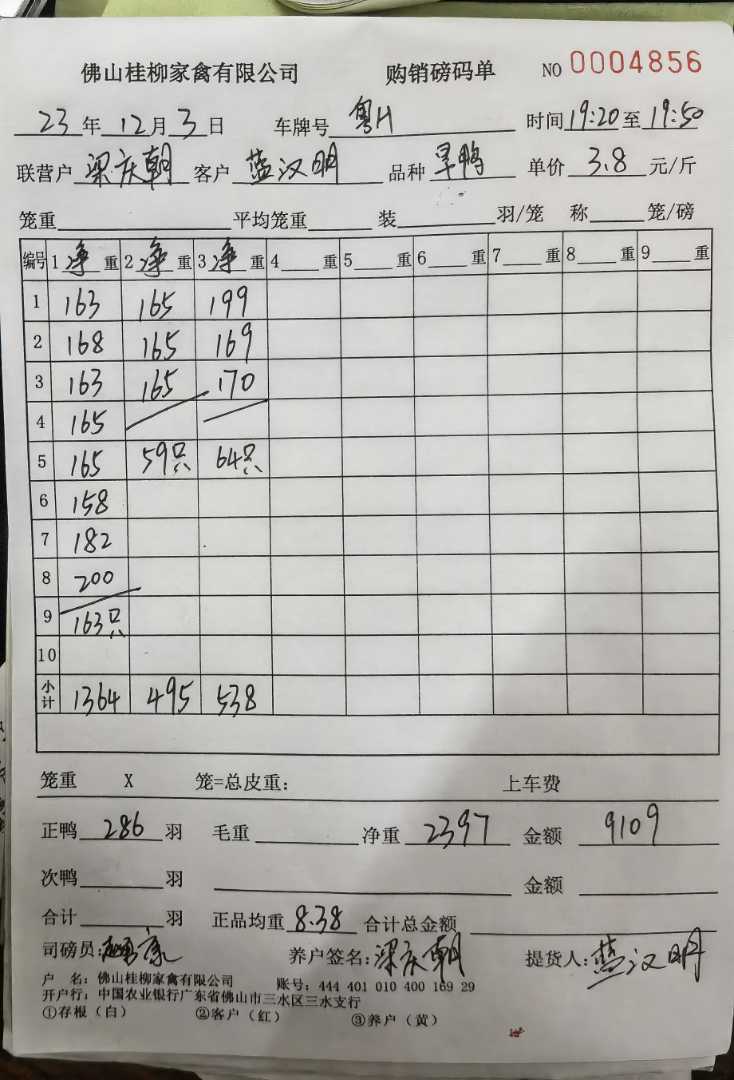 佛山桂柳家禽有限公司 购销磅码单 NO 0004856
23年12月3日 车牌号 粤H 时间19:20至19:50
联营户 梁庆朝 客户 蓝汉明 品种 旱鸭 单价 3.8 元/斤
笼重 平均笼重 装 羽/笼 称 笼/磅
编号 1净重 2净重 3净重 4 重 5 重 6 重 7 重 8 重 9 重
1 163 165 199
2 168 165 169
3 163 165 170
4 165
5 165 59只 64只
6 158
7 182
8 200
9 163只
10
小计 1364 495 538
笼重 X 笼=总皮重: 上车费
正鸭 286 羽 毛重 净重 2397 金额 9109
次鸭 羽 金额
合计 羽 正品均重 8.38 合计总金额
司磅员: 养户签名: 梁庆朝 提货人: 蓝汉明
户 名: 佛山桂柳家禽有限公司 账号: 444 401 010 400 169 29
开户行: 中国农业银行广东省佛山市三水区三水支行
①存根(白) ②客户(红) ③养户(黄)